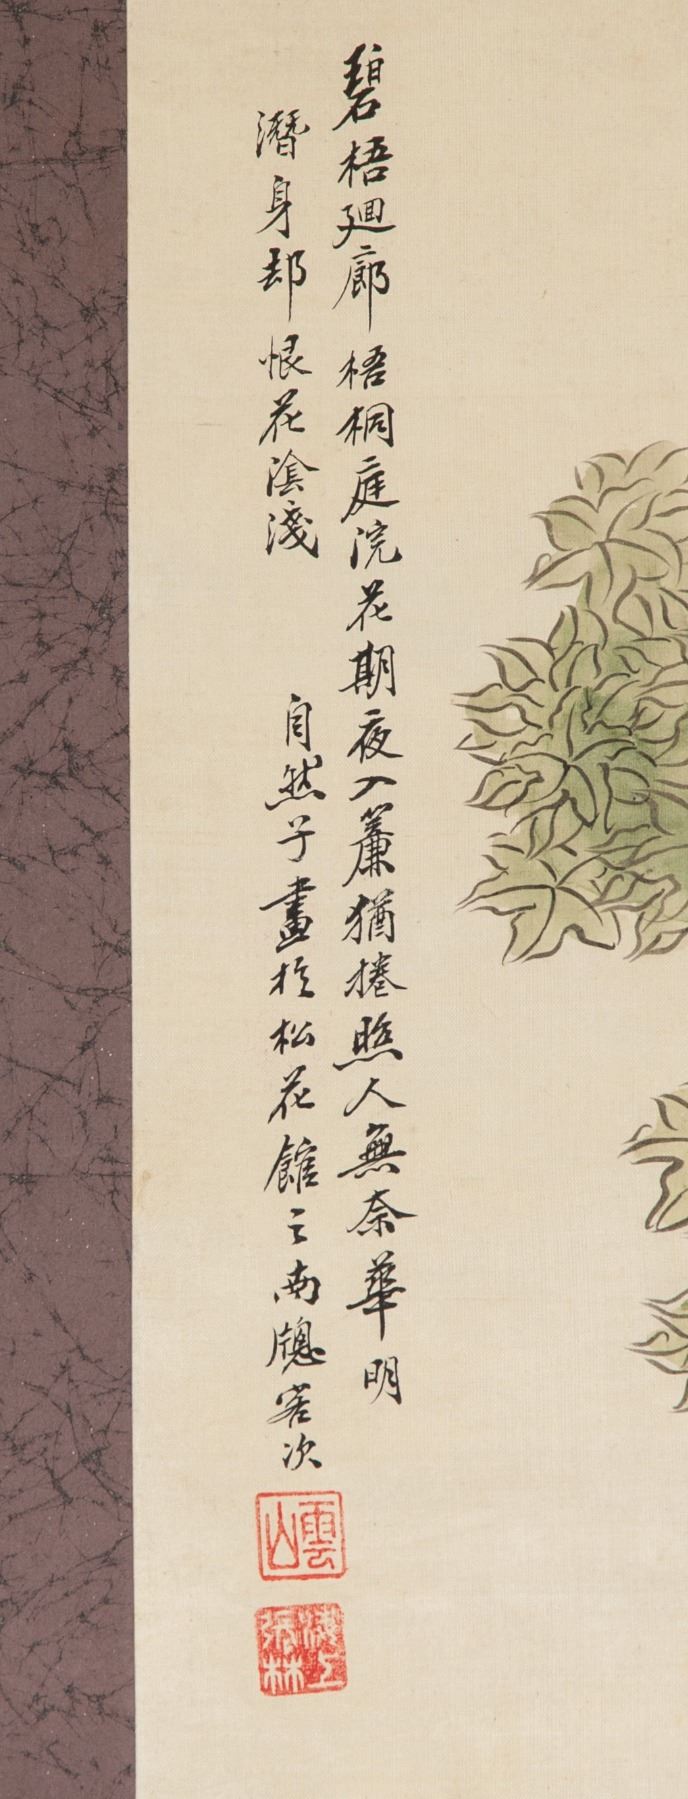 碧梧廻廊梧桐庭院花期夜入簾猶捲照人無奈華明
潛身却恨花陰淺
自然子畫於松花館之南牕客次
雲山
海上張林